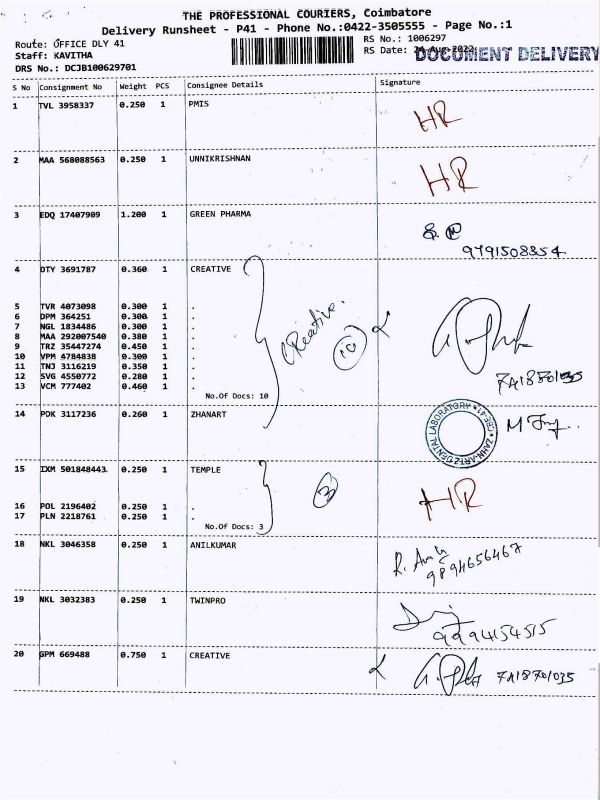 THE PROFESSIONAL COURIERS, Coimbatore
Delivery Runsheet - P41 - Phone No.:0422-3505555 - Page No.:1
Route: OFFICE DLY 41
RS No.: 1006297
Staff: KAVITHA
RS Date: 24-Aug-2022
DOCUMENT DELIVERY
DRS No.: DCJB100629701
S No Consignment No Weight PCS Consignee Details Signature
1 TVL 3958337 0.250 1 PMIS HR
2 MAA 568088563 0.250 1 UNNIKRISHNAN HR
3 EDQ 17407909 1.200 1 GREEN PHARMA
9791508354
4 OTY 3691787 0.360 1 CREATIVE
5 TVR 4073098 0.300 1 .
6 DPM 364251 0.300 1 .
7 NGL 1834486 0.300 1 .
8 MAA 292007540 0.380 1 .
9 TRZ 35447274 0.450 1 .
10 VPM 4784838 0.300 1 .
11 TNJ 3116219 0.350 1 .
12 SVG 4550772 0.280 1 .
13 VCM 777402 0.460 1 .
Creative.
10
No.Of Docs: 10
14 PDK 3117236 0.260 1 ZHANART
DENTAL LABORATORY
15 IXM 501848443 0.250 1 TEMPLE HR
16 POL 2196402 0.250 1 .
17 PLN 2218761 0.250 1 .
3
No.Of Docs: 3
18 NKL 3046358 0.250 1 ANILKUMAR
9894656467
19 NKL 3032383 0.250 1 TWINPRO
20 GPM 669488 0.750 1 CREATIVE 7A18701035